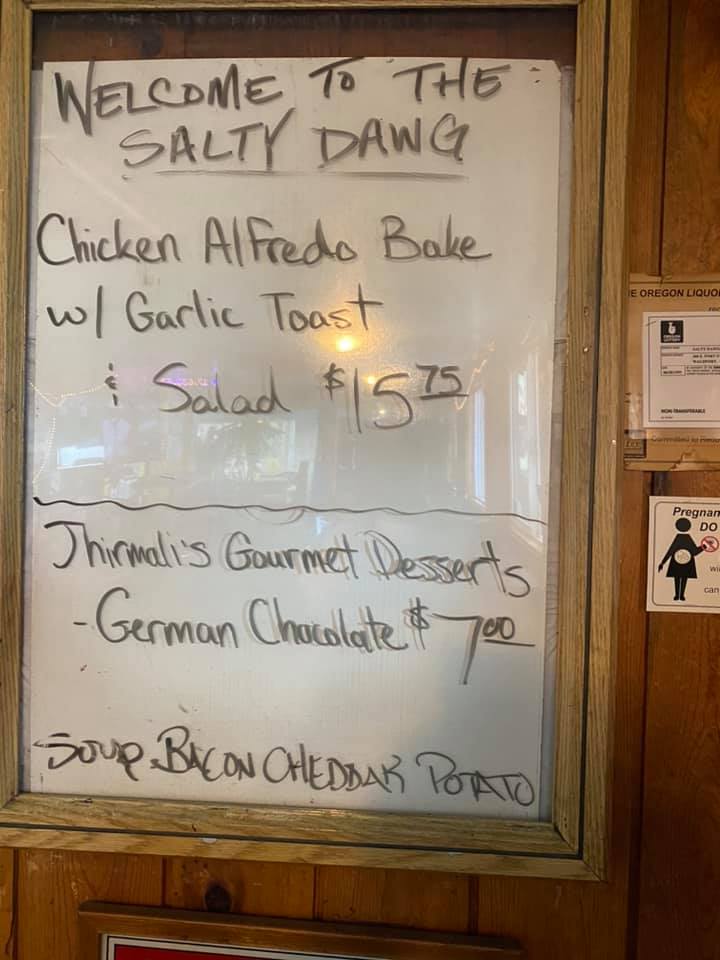 WELCOME TO THE
SALTY DAWG
Chicken Alfredo Bake
w/ Garlic Toast
& Salad $15 75
Jhirmali's Gourmet Desserts
- German Chocolate $7 00
SOUP. BACON CHEDDAR POTATO
E OREGON LIQUO
OREGON LOTTERY
SALTY DAWG
NON-TRANSFERABLE
Pregnan
DO
wi
can